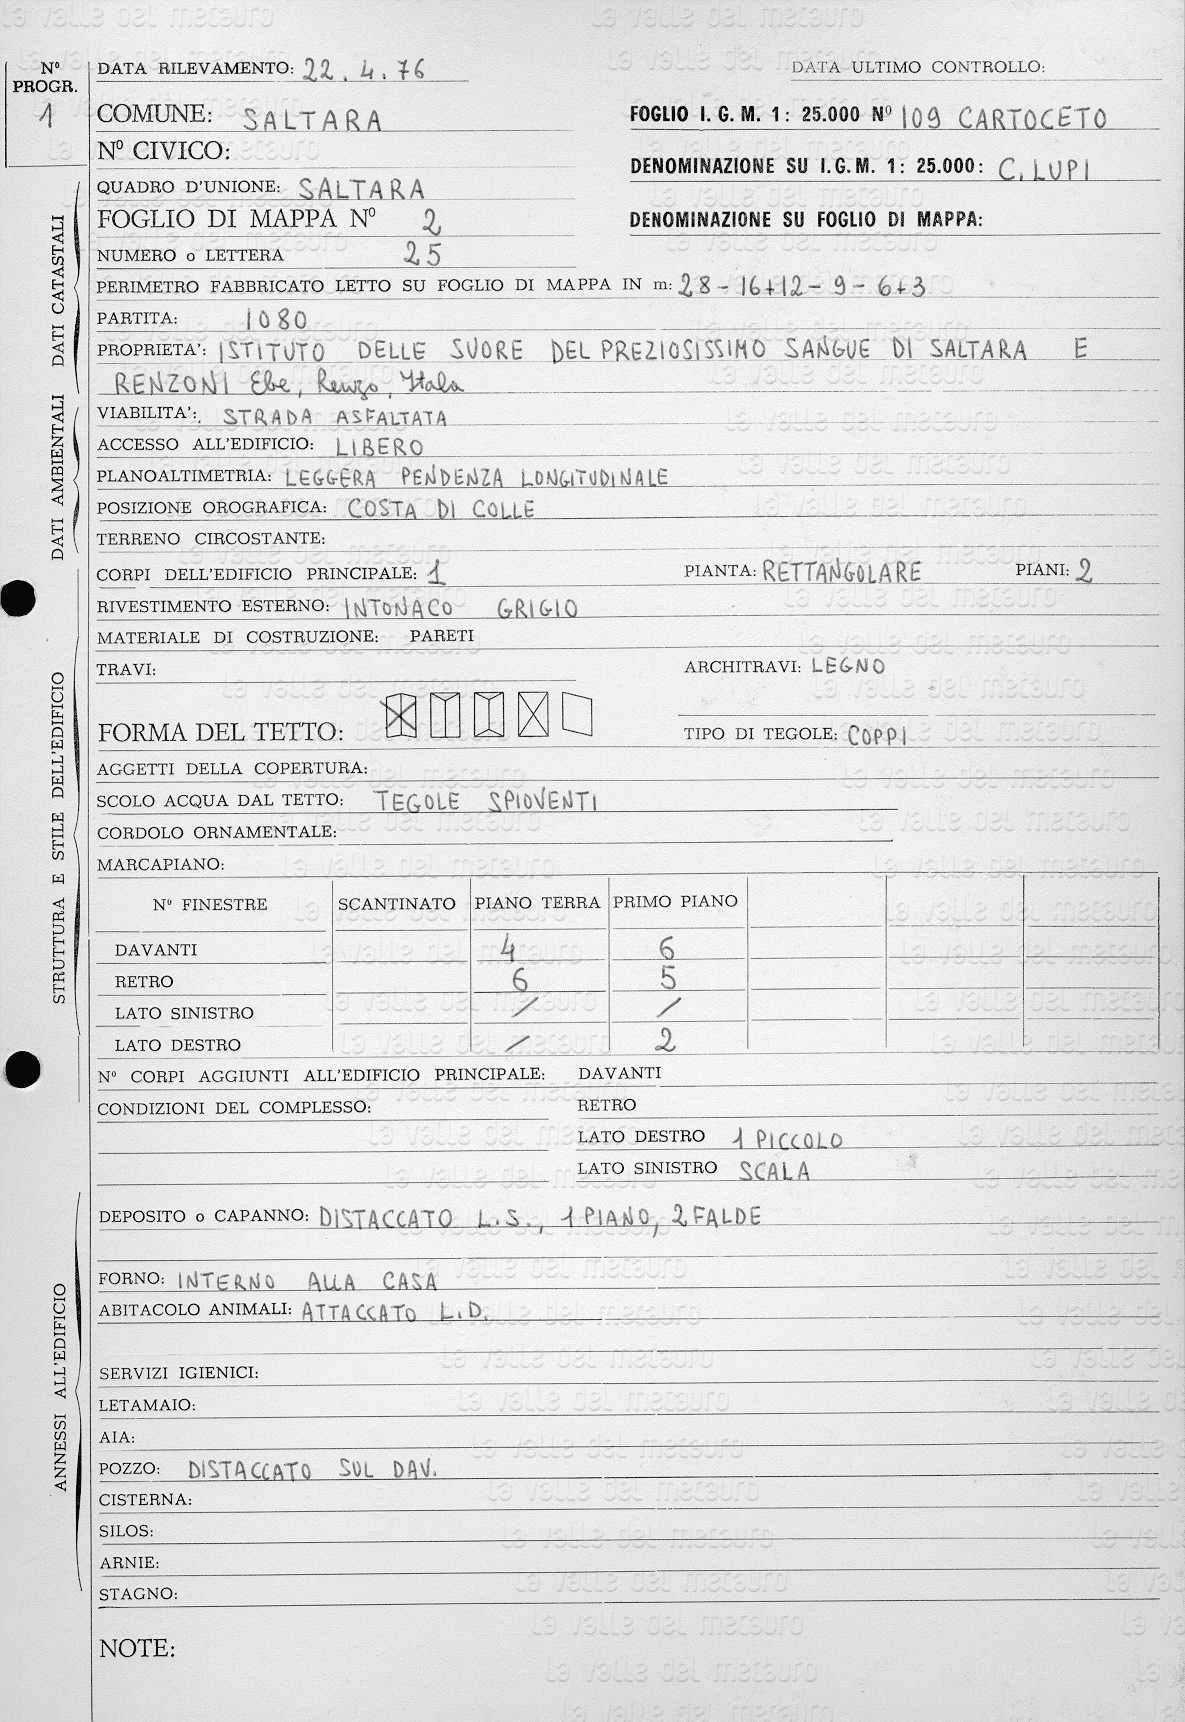 N° PROGR. 1
DATA RILEVAMENTO: 22.4.76 DATA ULTIMO CONTROLLO:
COMUNE: SALTARA FOGLIO I.G.M. 1: 25.000 N° 109 CARTOCETO
N° CIVICO: DENOMINAZIONE SU I.G.M. 1: 25.000: C. LUPI
QUADRO D'UNIONE: SALTARA
FOGLIO DI MAPPA N° 2 DENOMINAZIONE SU FOGLIO DI MAPPA:
NUMERO o LETTERA 25
PERIMETRO FABBRICATO LETTO SU FOGLIO DI MAPPA IN m: 28-16+12-9-6+3
PARTITA: 1080
PROPRIETA': ISTITUTO DELLE SUORE DEL PREZIOSISSIMO SANGUE DI SALTARA E
RENZONI Ebe, Renzo, Itala
VIABILITA': STRADA ASFALTATA
ACCESSO ALL'EDIFICIO: LIBERO
PLANOALTIMETRIA: LEGGERA PENDENZA LONGITUDINALE
POSIZIONE OROGRAFICA: COSTA DI COLLE
TERRENO CIRCOSTANTE:
CORPI DELL'EDIFICIO PRINCIPALE: 1 PIANTA: RETTANGOLARE PIANI: 2
RIVESTIMENTO ESTERNO: INTONACO GRIGIO
MATERIALE DI COSTRUZIONE: PARETI
TRAVI: ARCHITRAVI: LEGNO
FORMA DEL TETTO: TIPO DI TEGOLE: COPPI
AGGETTI DELLA COPERTURA:
SCOLO ACQUA DAL TETTO: TEGOLE SPIOVENTI
CORDOLO ORNAMENTALE:
MARCAPIANO:
N° FINESTRE SCANTINATO PIANO TERRA PRIMO PIANO
DAVANTI 4 6
RETRO 6 5
LATO SINISTRO / /
LATO DESTRO / 2
N° CORPI AGGIUNTI ALL'EDIFICIO PRINCIPALE: DAVANTI
CONDIZIONI DEL COMPLESSO: RETRO
LATO DESTRO 1 PICCOLO
LATO SINISTRO SCALA
DEPOSITO o CAPANNO: DISTACCATO L.S., 1 PIANO, 2 FALDE
FORNO: INTERNO ALLA CASA
ABITACOLO ANIMALI: ATTACCATO L.D.
SERVIZI IGIENICI:
LETAMAIO:
AIA:
POZZO: DISTACCATO SUL DAV.
CISTERNA:
SILOS:
ARNIE:
STAGNO:
NOTE:
DATI CATASTALI
DATI AMBIENTALI
STRUTTURA E STILE DELL'EDIFICIO
ANNESSI ALL'EDIFICIO
la valle del metauro